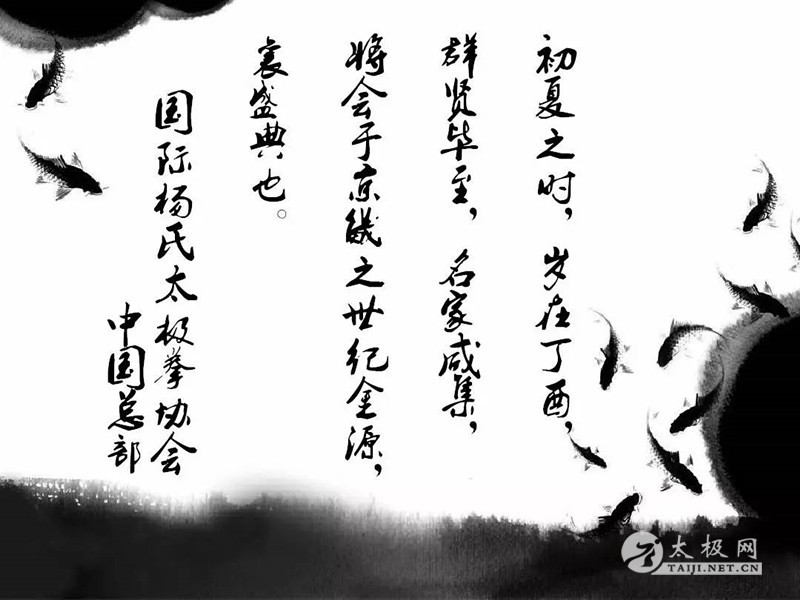 初夏之时，岁在丁酉，
群贤毕至，名家咸集，
将会于京畿之世纪金源，
襄盛典也。
国际杨氏太极拳协会
中国总部
太极网
TAIJI.NET.CN